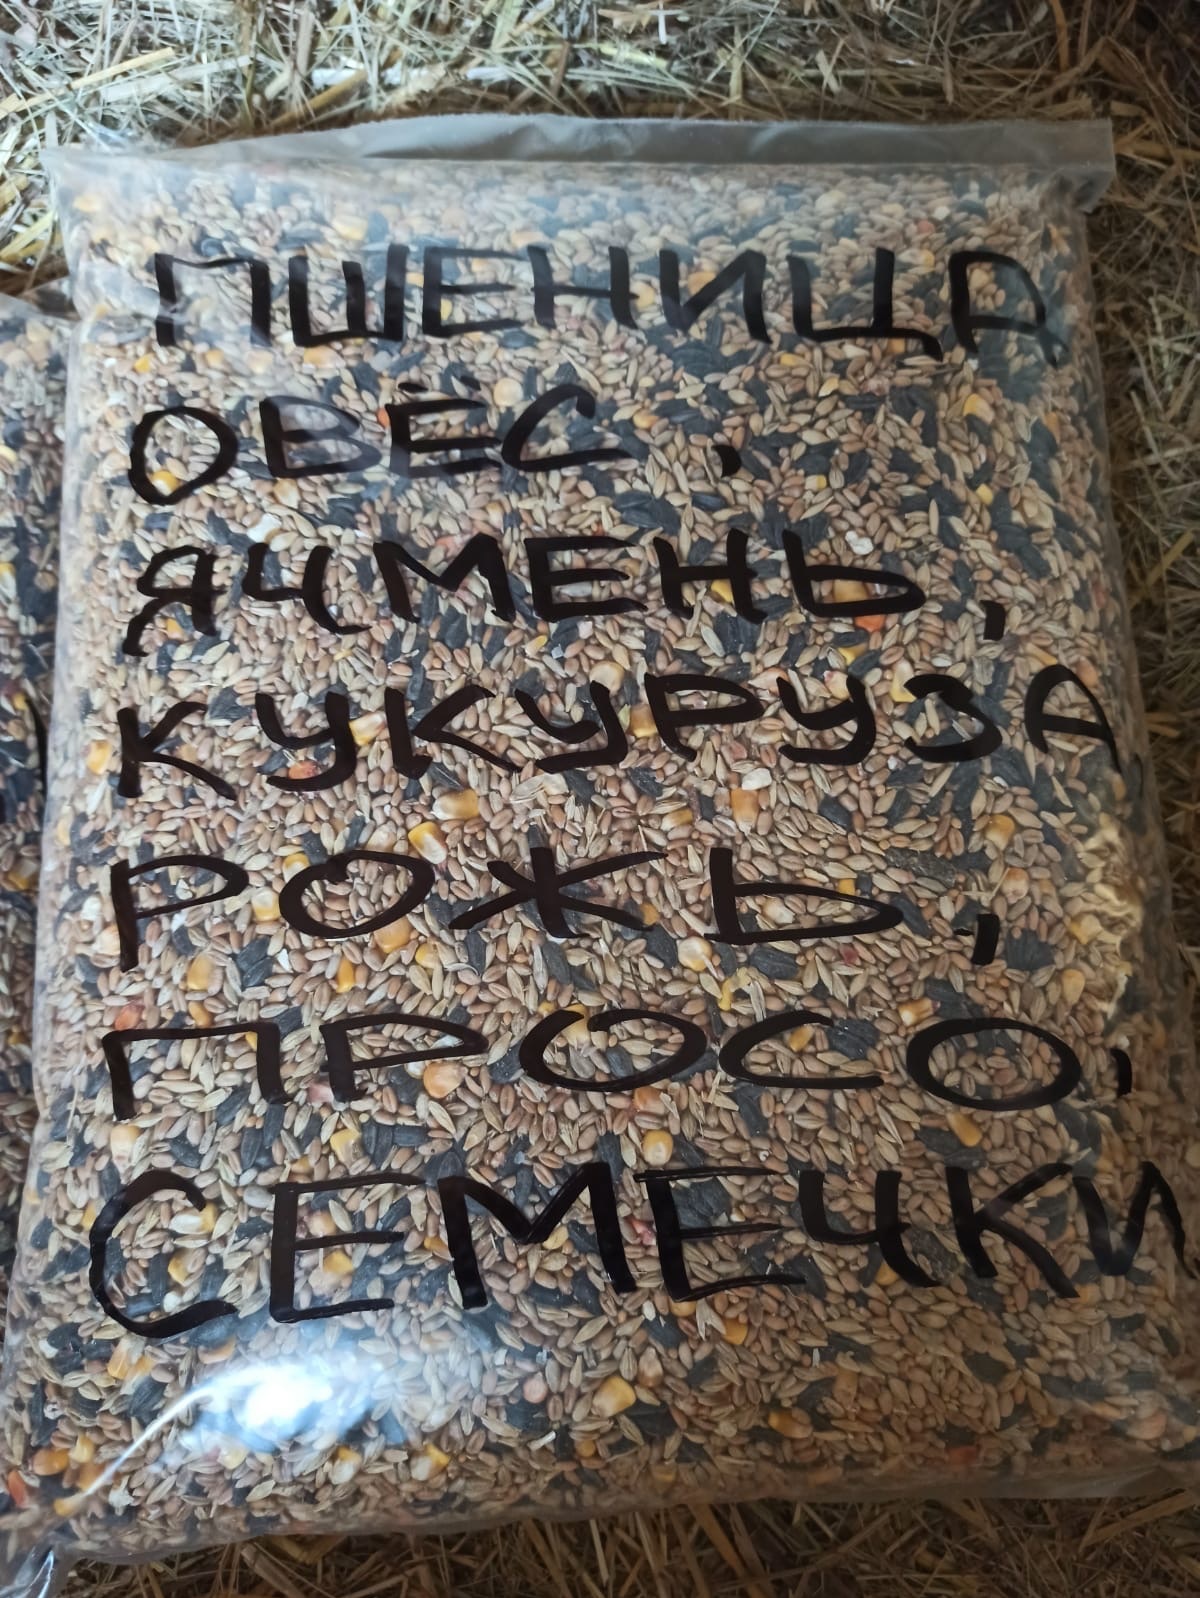 ПШЕНИЦА
ОВЁС,
ЯЧМЕНЬ,
КУКУРУЗА
РОЖЬ,
ПРОСО,
СЕМЕЧКИ